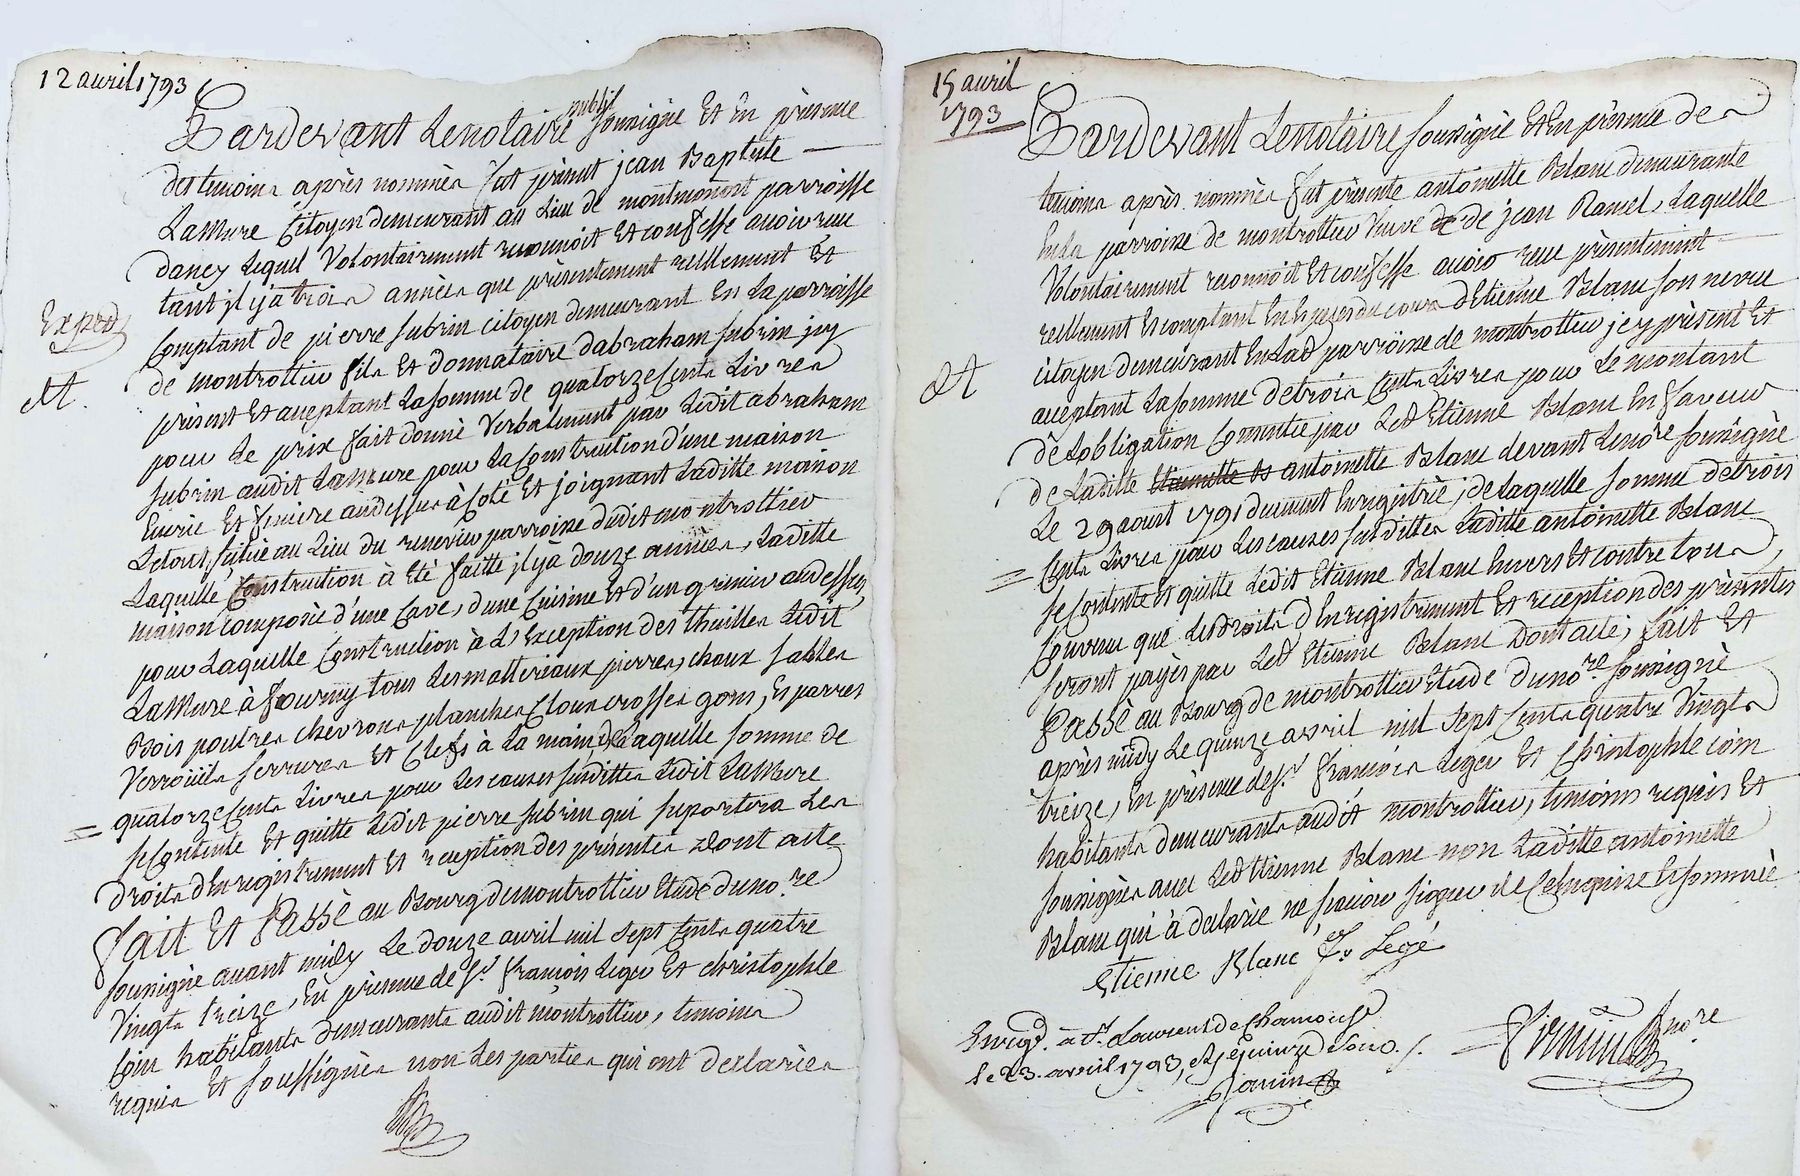 12 avril 1793
Pardevant Le notaire publiq soussigné Et En présence
des temoins après nommés fut présent jean Baptiste
LaMure Citoyen demeurant au Lieu de montmonost parroisse
dancy Lequel Volontairement reconnoit Et confesse avoir reçu
tant il y a trois années que présentement reellement Et
Comptant de pierre subrin citoyen demeurant En La parroisse
de montrottier fils Et donnataire dabraham subrin jcy
présent Et acceptant La somme de quatorze Cents Livres
pour Le prix fait donné Verbalement par Ledit abraham
subrin audit LaMure pour La Construction d'une maison
Ecurie Et feniere audessus à Coté Et joignant Laditte maison
Le tout situé au Lieu du parroisse dudit montrottier
Laquelle Construction à Eté faitte il y à douze années, Laditte
maison composée d'une Cave, d'une Cuisine Et d'un grenier audessus,
pour Laquelle Construction à L'Exception des thuilles Ledit
LaMure à fourny tous Les matteriaux pierres, chaux sables
Bois poutres chevrons planches Cloux crosses gons, Esparres
Verrouils serrures Et Clefs à La main, de Laquelle somme de
quatorze Cents Livres pour Les causes susdittes Ledit LaMure
se Contente Et quitte Ledit pierre subrin qui suportera Les
droits d'Enregistrement Et reception des présentes Dont acte
fait Et Passé au Bourg de montrottier Etude du no.re
soussigné avant midy Le douze avril mil sept Cents quatre
Vingts treize, En présence de s.r françois Leger Et christophle
Coin habitants demeurants audit montrottier, temoins
requis Et soussignés non Les parties qui ont declarées
Exped.
15 avril
1793
Pardevant Le notaire soussigné Et En présence des
temoins après nommés fut présente antoinette Blanc demeurante
En la parroisse de montrottier Veuve de de jean Ramel, Laquelle
Volontairement reconnoit Et confesse avoir reçu présentement
reellement Et comptant En Especes du cours d'Etienne Blanc son neveu
citoyen demeurant En Lad parroisse de montrottier jcy présent Et
acceptant La somme de trois Cents Livres pour Le montant
de Lobligation Consentie par Led Etienne Blanc En faveur
de Laditte antoinette Blanc devant Le no.re soussigné
Le 29 aoust 1791 duement Enregistrée, de Laquelle somme de trois
Cents Livres pour Les causes susdittes Laditte antoinette Blanc
se Contente Et quitte Ledit Etienne Blanc Envers Et contre tous,
Convenu que Les droits d'Enregistrement Et reception des présentes
seront payés par Led Etienne Blanc Dont acte, fait Et
Passé au Bourg de montrottier Etude du no.re soussigné
après midy Le quinze avril mil sept Cents quatre Vingts
treize, En présence de s.r françois Leger Et Christophle Coin
habitants demeurants audit montrottier, temoins requis Et
soussignés avec Led Etienne Blanc non Laditte antoinette
Blanc qui à declarée ne sçavoir signer de Ce Enquise Et sommée
Etienne Blanc fs Legé
Enregt. à St. Laurent de Chamousset
le 23 avril 1793, quinze sous.
no.re